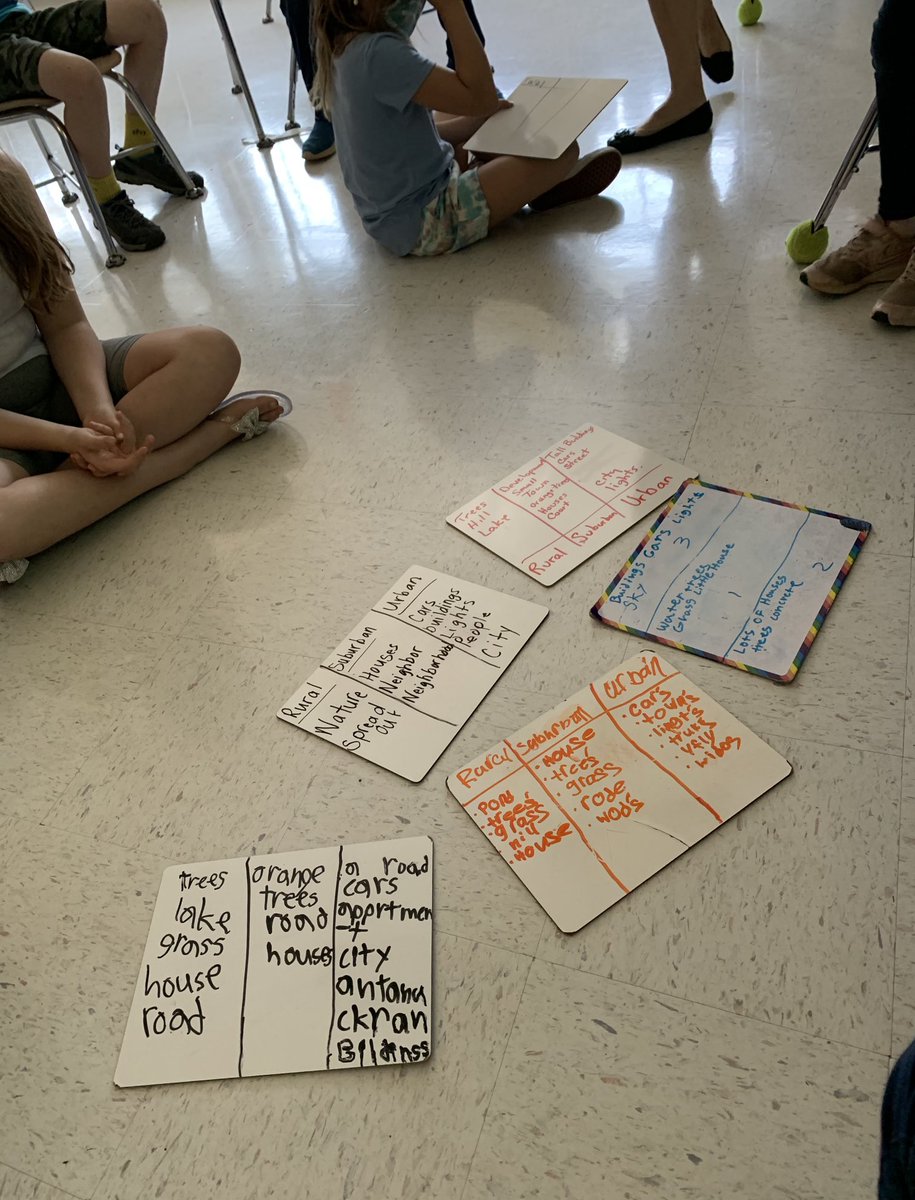 Trees
Hill
Lake
Development
Small
Town
Orange trees
Houses
Court
Tall Buildings
Cars
Street
City
lights
Rural
Suburban
Urban
Buildings Cars Lights
Sky
3
Water trees
Grass Little House
1
Lots of Houses
trees concrete
2
Rural
Suburban
Urban
Nature
Spread
out
Houses
Neighbor
Neighborhoods
Cars
buildings
Lights
People
City
Rurcl
Suburban
Urban
•Pond
•trees
•grass
•hill
•House
•House
•trees
•grass
•rode
•wods
•cars
•lights
trees
lake
grass
house
road
orange
trees
road
houses
a road
cars
apprtmen
t
city
antanu
ckran
Bildinss